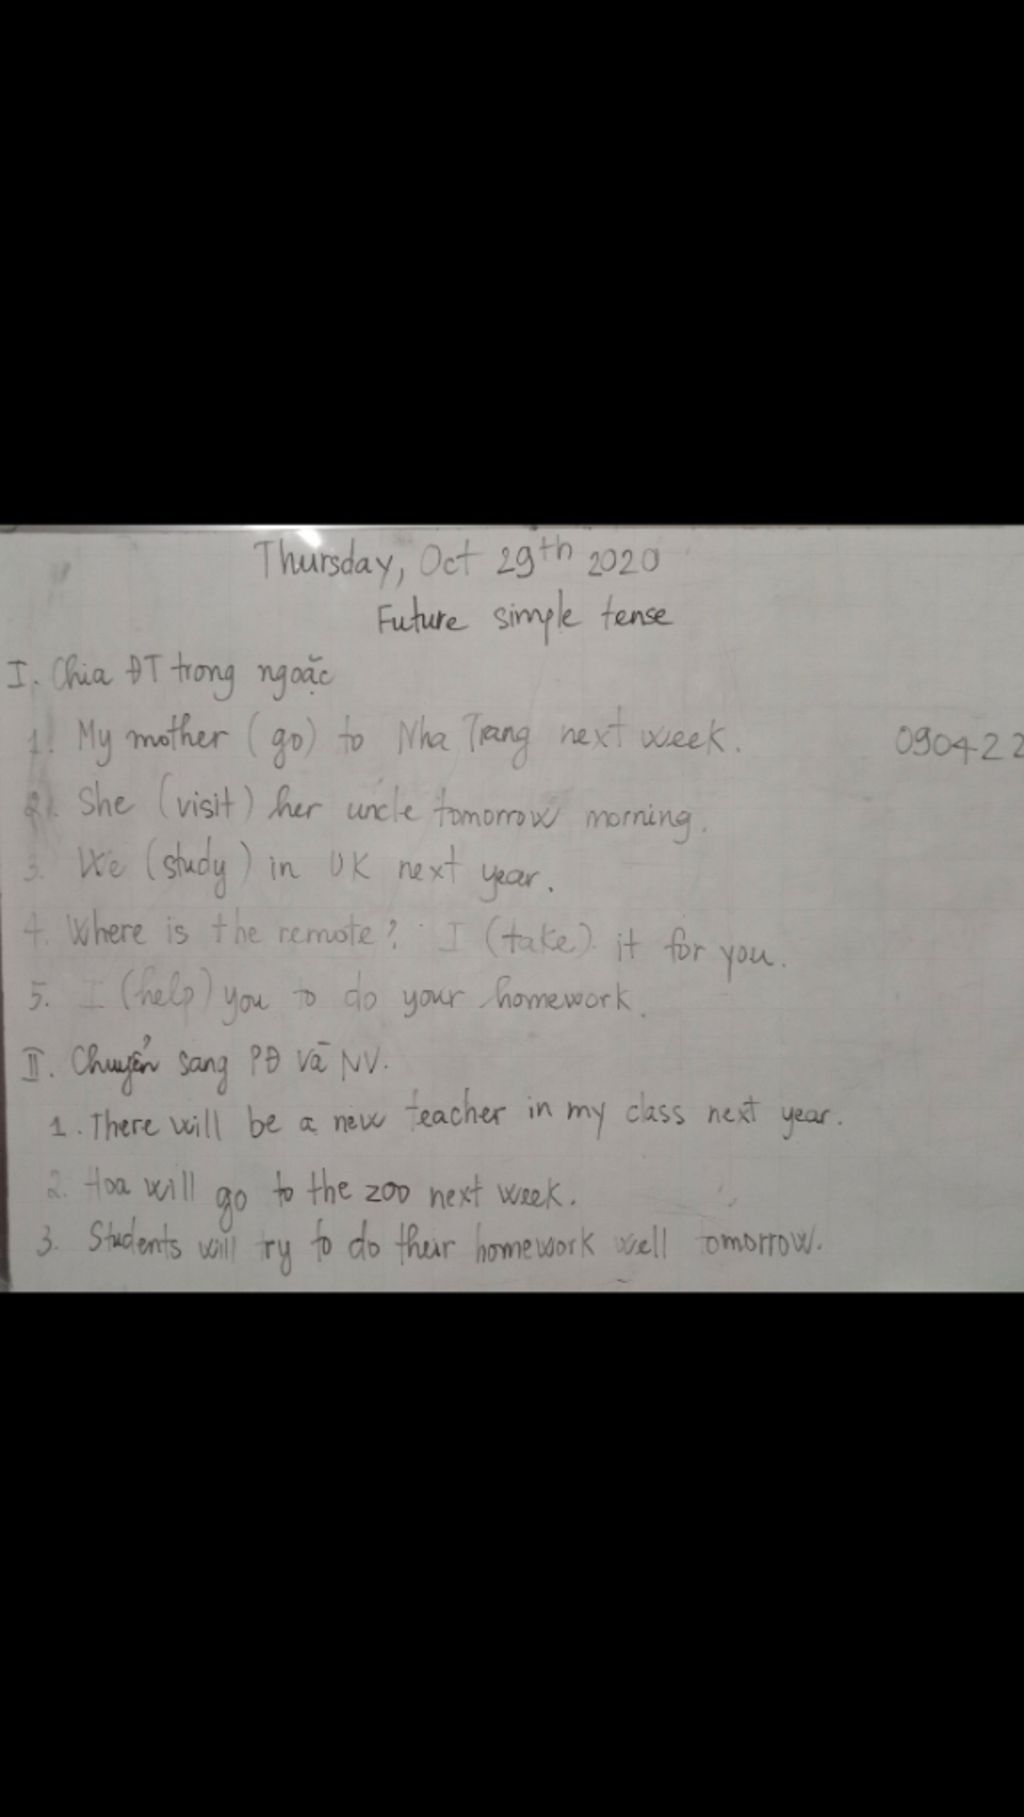 Thursday, Oct 29th 2020
Future simple tense
I. Chia ĐT trong ngoặc
1. My mother (go) to Nha Trang next week.
090422
2. She (visit) her uncle tomorrow morning.
3. We (study) in UK next year.
4. Where is the remote? I (take) it for you.
5. I (help) you to do your homework.
II. Chuyển sang PĐ và NV.
1. There will be a new teacher in my class next year.
2. Hoa will go to the zoo next week.
3. Students will try to do their homework well tomorrow.